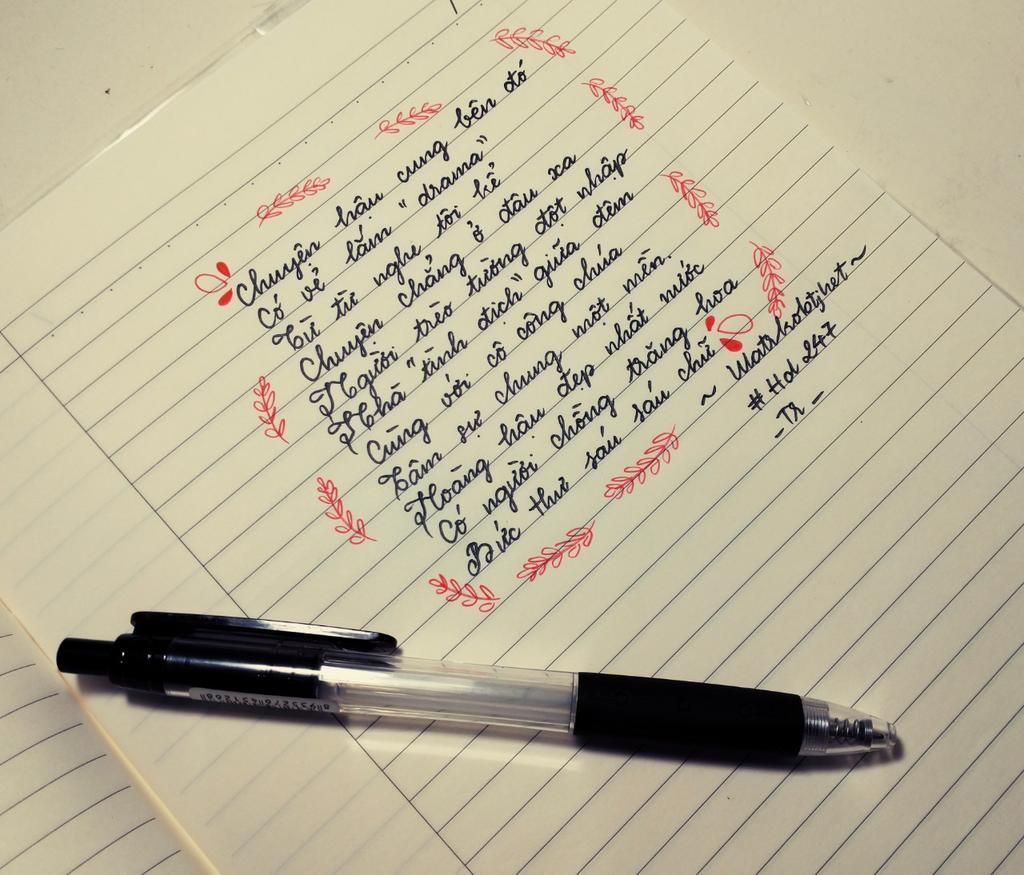 Chuyện hậu cung bên đó
Có vẻ lắm "drama"
Từ từ nghe tôi kể
Chuyện chẳng ở đâu xa
Người trèo tường đột nhập
Nhà "tình địch" giữa đêm
Cùng với cô công chúa
Tâm sự chung một mền.
Hoàng hậu đẹp nhất nước
Có người chồng trăng hoa
Bức thư sáu sáu chữ
~ ~
# Hd 247
- Tr -